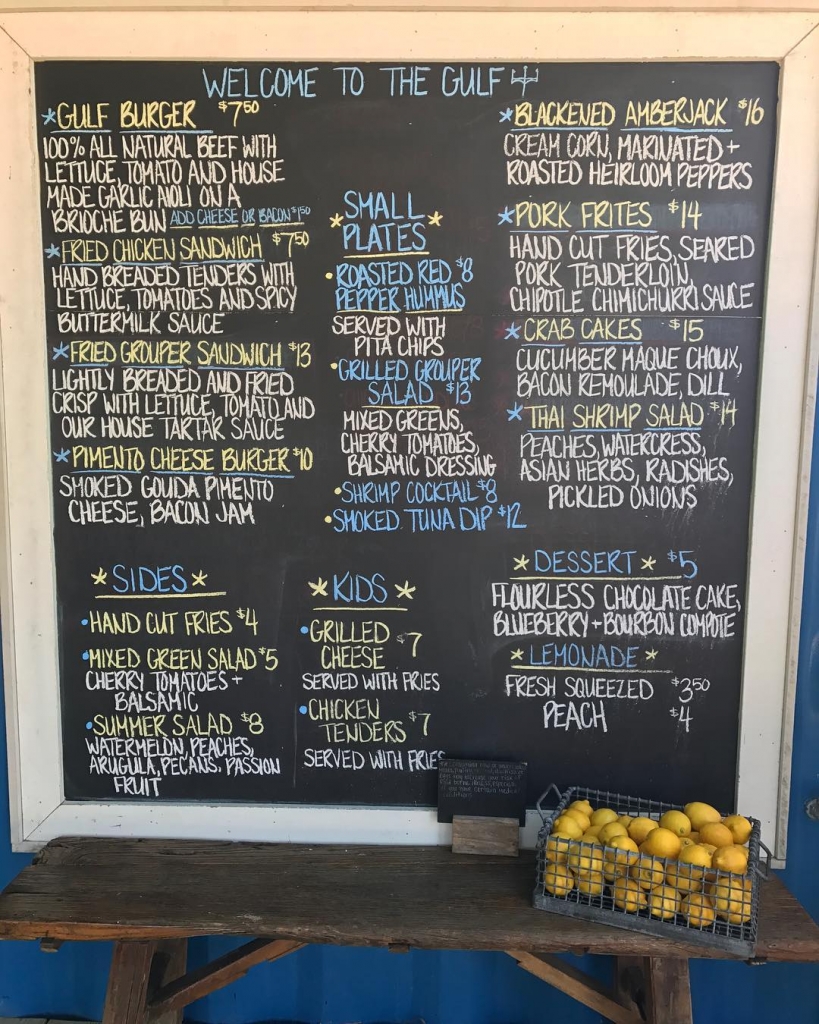 WELCOME TO THE GULF
*GULF BURGER $7.50
100% ALL NATURAL BEEF WITH
LETTUCE, TOMATO AND HOUSE
MADE GARLIC AIOLI ON A
BRIOCHE BUN ADD CHEESE OR BACON $1.50
*FRIED CHICKEN SANDWICH $7.50
HAND BREADED TENDERS WITH
LETTUCE, TOMATOES AND SPICY
BUTTERMILK SAUCE
*FRIED GROUPER SANDWICH $13
LIGHTLY BREADED AND FRIED
CRISP WITH LETTUCE, TOMATO AND
OUR HOUSE TARTAR SAUCE
*PIMENTO CHEESE BURGER $10
SMOKED GOUDA PIMENTO
CHEESE, BACON JAM
*SMALL
PLATES*
•ROASTED RED $8
PEPPER HUMMUS
SERVED WITH
PITA CHIPS
•GRILLED GROUPER
SALAD $13
MIXED GREENS,
CHERRY TOMATOES,
BALSAMIC DRESSING
•SHRIMP COCKTAIL $8
•SMOKED TUNA DIP $12
*BLACKENED AMBERJACK $16
CREAM CORN, MARINATED +
ROASTED HEIRLOOM PEPPERS
*PORK FRITES $14
HAND CUT FRIES, SEARED
PORK TENDERLOIN,
CHIPOTLE CHIMICHURRI SAUCE
*CRAB CAKES $15
CUCUMBER MAQUE CHOUX,
BACON REMOULADE, DILL
*THAI SHRIMP SALAD $14
PEACHES, WATERCRESS,
ASIAN HERBS, RADISHES,
PICKLED ONIONS
*SIDES*
•HAND CUT FRIES $4
•MIXED GREEN SALAD $5
CHERRY TOMATOES +
BALSAMIC
•SUMMER SALAD $8
WATERMELON, PEACHES,
ARUGULA, PECANS, PASSION
FRUIT
*KIDS*
•GRILLED
CHEESE $7
SERVED WITH FRIES
•CHICKEN
TENDERS $7
SERVED WITH FRIES
*DESSERT* $5
FLOURLESS CHOCOLATE CAKE,
BLUEBERRY + BOURBON COMPOTE
*LEMONADE*
FRESH SQUEEZED $3.50
PEACH $4